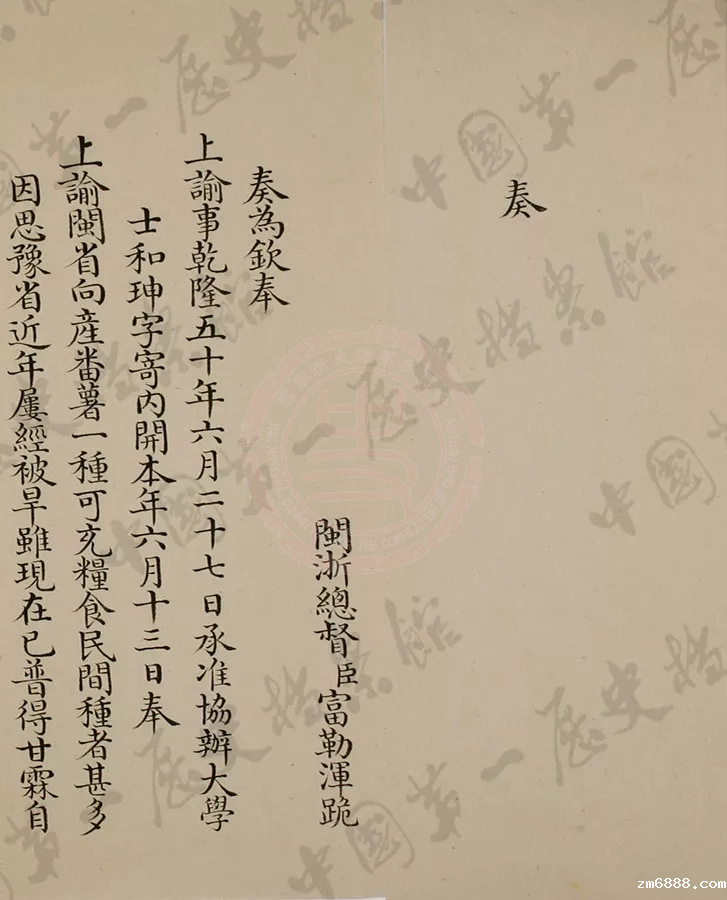 奏
閩浙總督臣富勒渾跪
奏為欽奉
上諭事乾隆五十年六月二十七日承准協辦大學
士和珅字寄內開本年六月十三日奉
上諭閩省向産番薯一種可充糧食民間種者甚多
因思豫省近年屢經被旱雖現在已普得甘霖自
中國第一歷史檔案館
zm6888.com